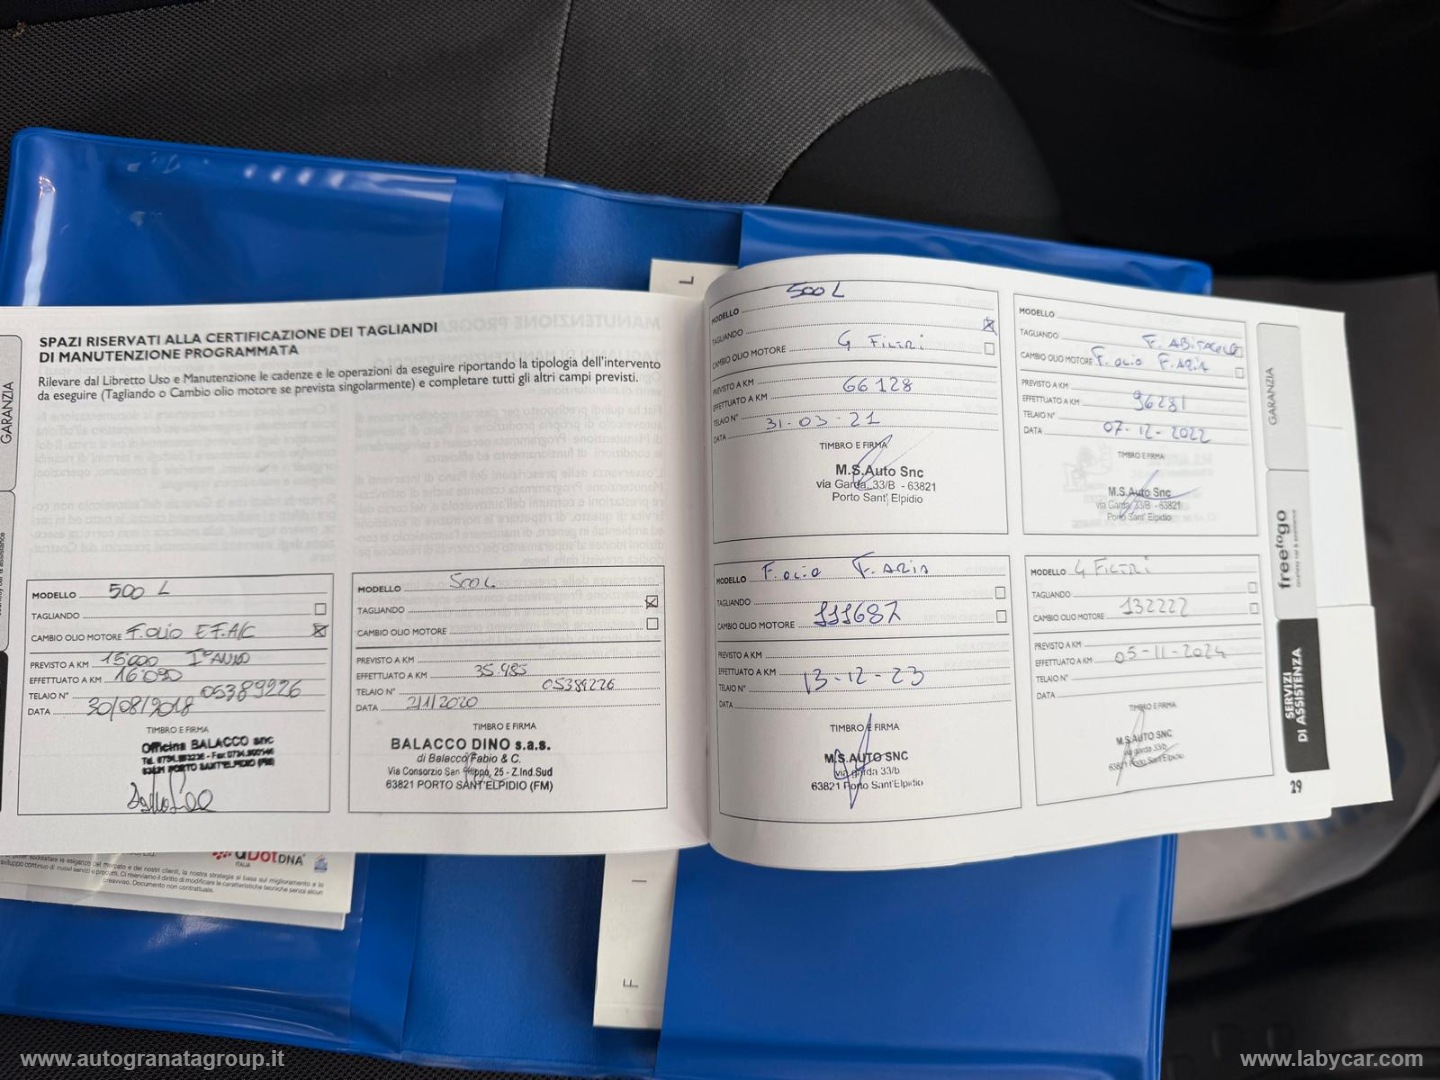 GARANZIA
SPAZI RISERVATI ALLA CERTIFICAZIONE DEI TAGLIANDI
DI MANUTENZIONE PROGRAMMATA
Rilevare dal Libretto Uso e Manutenzione le cadenze e le operazioni da eseguire riportando la tipologia dell'intervento
da eseguire (Tagliando o Cambio olio motore se prevista singolarmente) e completare tutti gli altri campi previsti.
MODELLO 500 L
TAGLIANDO
CAMBIO OLIO MOTORE F. OLIO E F.A/C
PREVISTO A KM 15000 I° ANNO
EFFETTUATO A KM 16090
TELAIO N° 05389226
DATA 30/08/2018
TIMBRO E FIRMA
Officina BALACCO snc
63821 PORTO SANT'ELPIDIO (FM)
MODELLO 500L
TAGLIANDO
CAMBIO OLIO MOTORE
PREVISTO A KM
EFFETTUATO A KM 35.985
TELAIO N° 05389226
DATA 2/1/2020
TIMBRO E FIRMA
BALACCO DINO s.a.s.
di Balacco Fabio & C.
Via Consorzio San Filippo, 25 - Z.Ind.Sud
63821 PORTO SANT'ELPIDIO (FM)
L
MODELLO 500L
TAGLIANDO
CAMBIO OLIO MOTORE 4 FILTRI
PREVISTO A KM
EFFETTUATO A KM 66128
TELAIO N°
DATA 31-03-21
TIMBRO E FIRMA
M.S.Auto Snc
via Garda, 33/B - 63821
Porto Sant'Elpidio
MODELLO
TAGLIANDO F. ABITACOLO
CAMBIO OLIO MOTORE F. OLIO F. ARIA
PREVISTO A KM
EFFETTUATO A KM 96281
TELAIO N°
DATA 07-12-2022
TIMBRO E FIRMA
M.S.Auto Snc
via Garda, 33/B - 63821
Porto Sant'Elpidio
MODELLO F. OLIO F. ARIA
TAGLIANDO
CAMBIO OLIO MOTORE 111687
PREVISTO A KM
EFFETTUATO A KM
TELAIO N° 13-12-23
DATA
TIMBRO E FIRMA
M.S.AUTO SNC
via garda 33/b
63821 Porto Sant'Elpidio
MODELLO 4 FILTRI
TAGLIANDO
CAMBIO OLIO MOTORE 132222
PREVISTO A KM
EFFETTUATO A KM 05-11-2024
TELAIO N°
DATA
TIMBRO E FIRMA
M.S.AUTO SNC
via garda 33/b
63821 Porto Sant'Elpidio
GARANZIA
freetogo
SERVIZI
DI ASSISTENZA
29
DotDNA
ITALIA
I
F
www.autogranatagroup.it
www.labycar.com